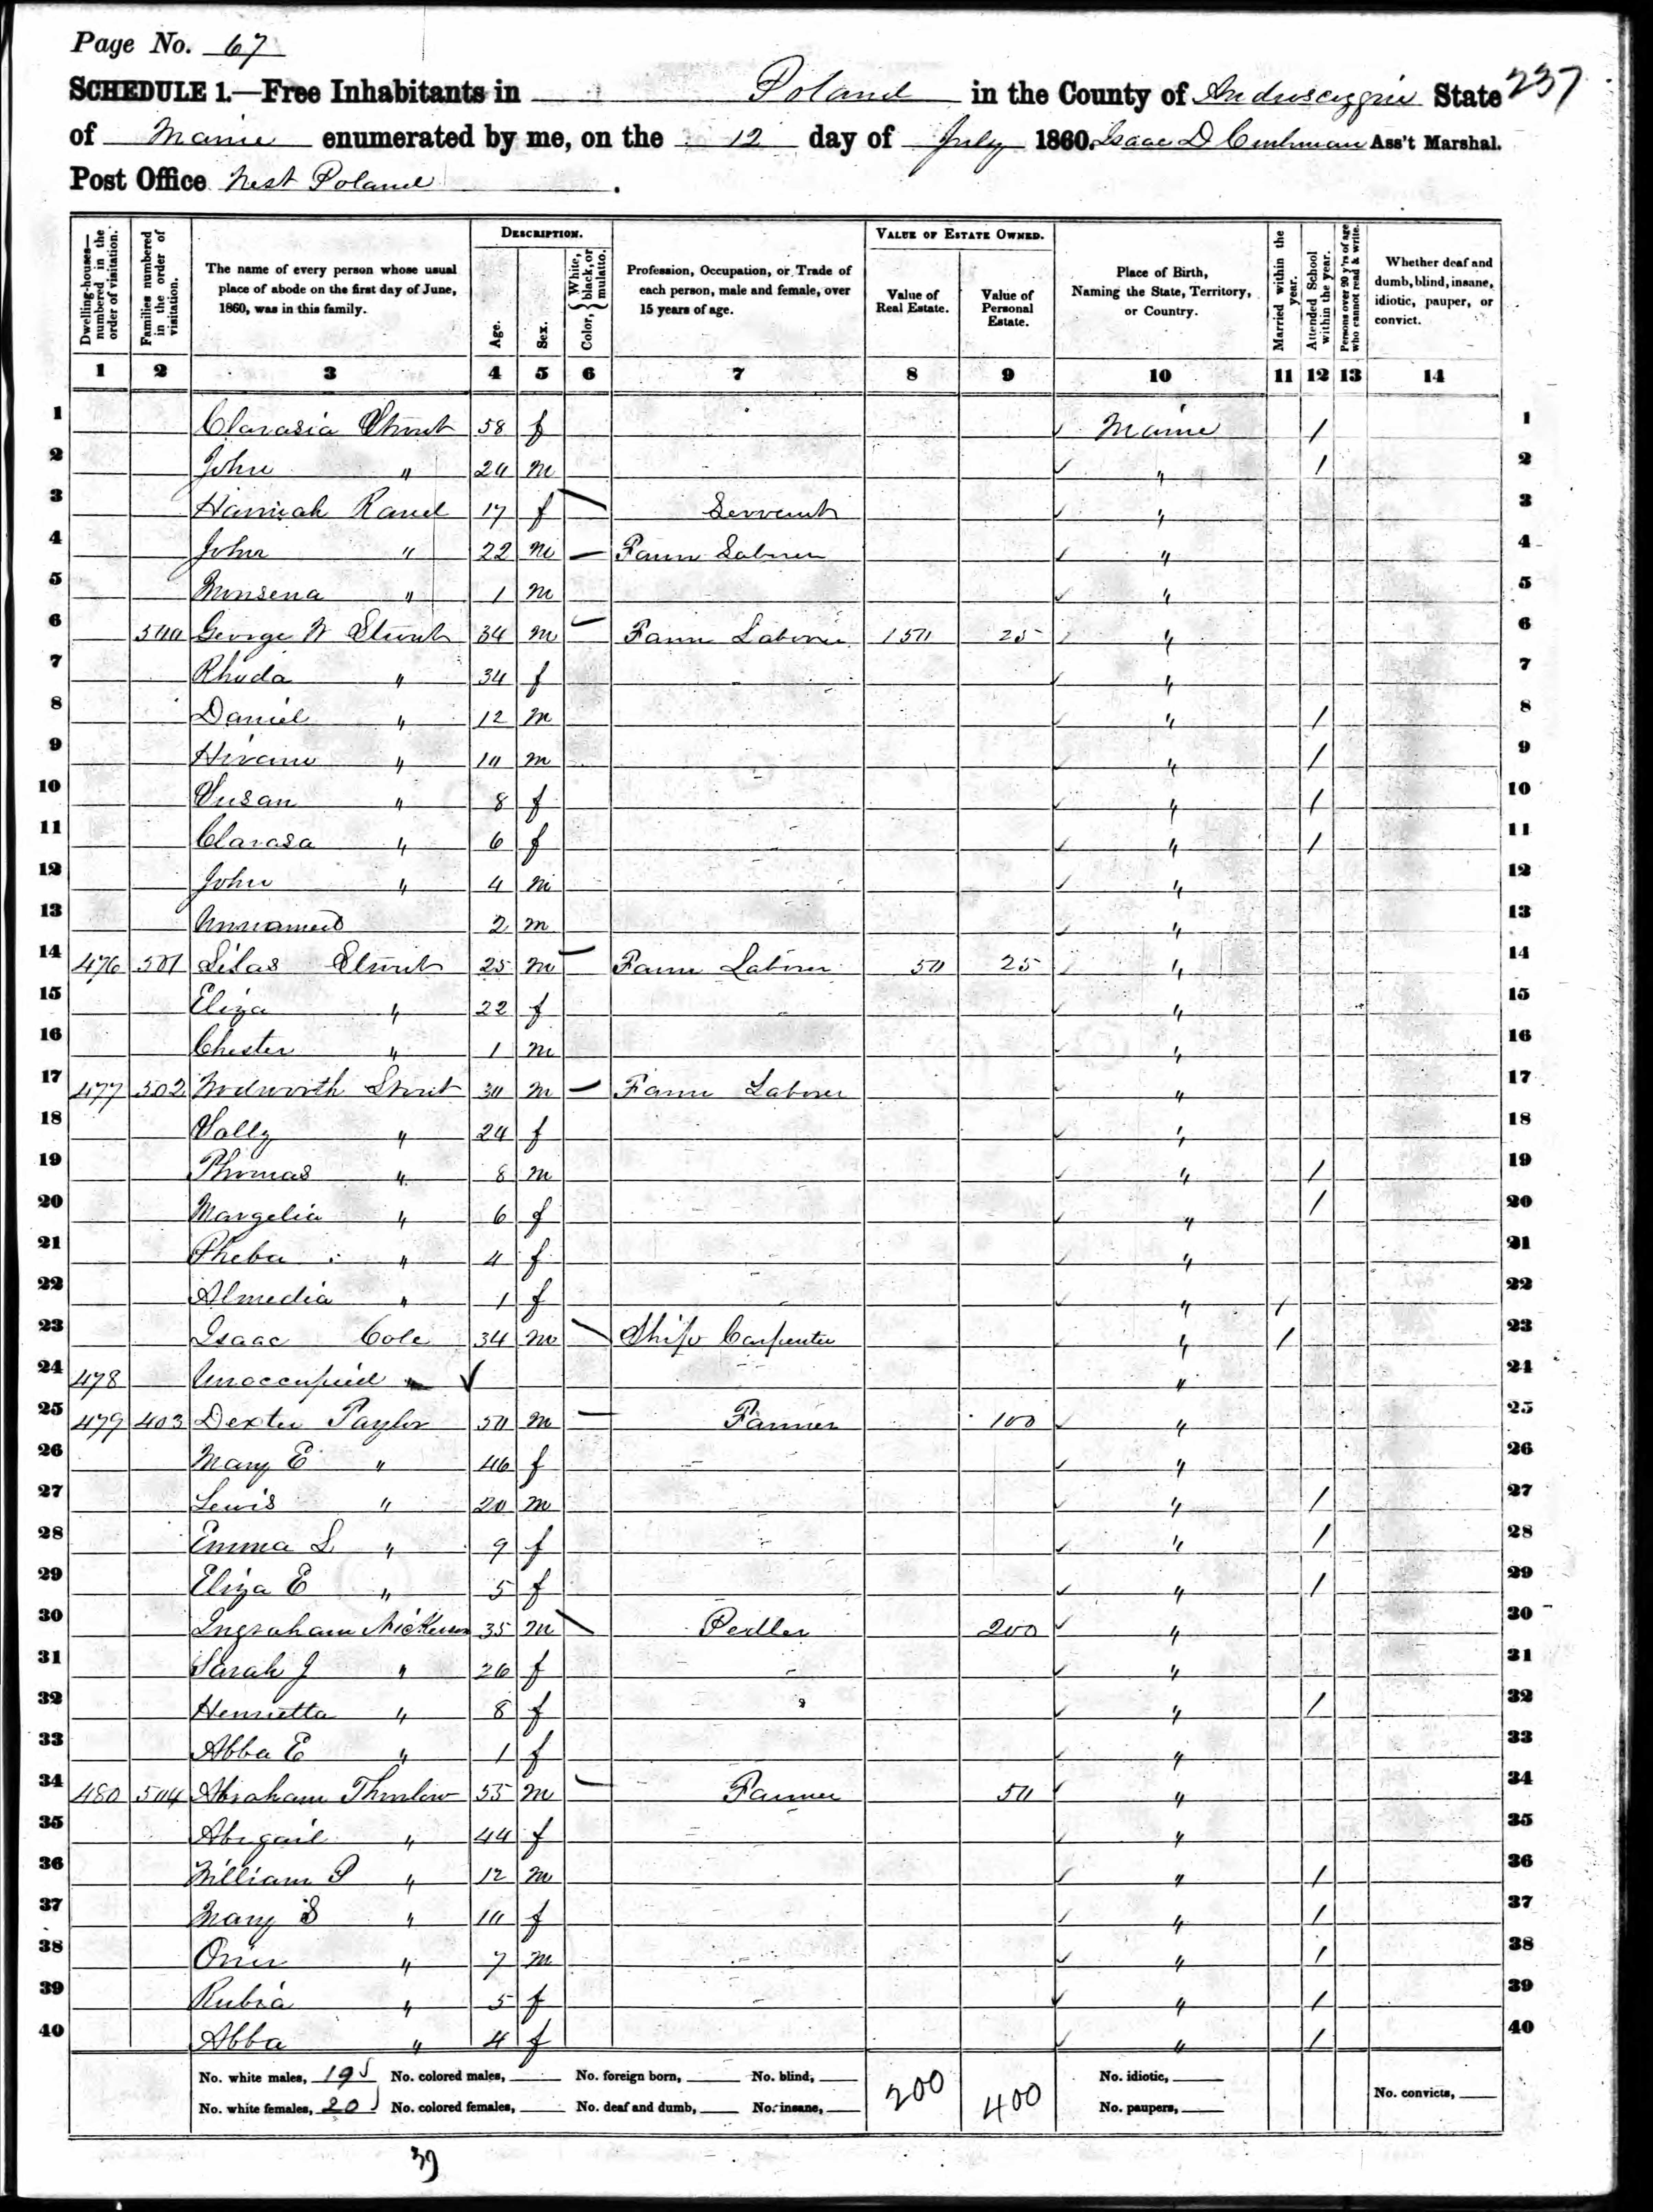 Page No. 67
SCHEDULE 1.—Free Inhabitants in Poland in the County of Androscoggin State 237
of Maine enumerated by me, on the 12 day of July 1860. Isaac D Cushman Ass't Marshal.
Post Office West Poland.
Dwelling-houses—numbered in the order of visitation.
Families numbered in the order of visitation.
The name of every person whose usual place of abode on the first day of June, 1860, was in this family.
DESCRIPTION.
Age.
Sex.
Color, { White, black, or mulatto.
Profession, Occupation, or Trade of each person, male and female, over 15 years of age.
VALUE OF ESTATE OWNED.
Value of Real Estate.
Value of Personal Estate.
Place of Birth, Naming the State, Territory, or Country.
Married within the year.
Attended School within the year.
Persons over 20 y'rs of age who cannot read & write.
Whether deaf and dumb, blind, insane, idiotic, pauper, or convict.
1 2 3 4 5 6 7 8 9 10 11 12 13 14
1 Clarasia 58 f Maine / 1
2 John " 24 m " / 2
3 Hannah Rand 17 f Servant " 3
4 John " 22 m Farm Laborer " 4
5 " 1 m " 5
6 500 George W Strout 34 m Farm Laborer 150 25 " 6
7 Rhoda " 34 f " 7
8 Daniel " 12 m " / 8
9 Hiram " 10 m " / 9
10 Susan " 8 f " / 10
11 Clarasa " 6 f " / 11
12 John " 4 m " 12
13 Unnamed 2 m " 13
14 476 501 Silas Strout 25 m Farm Laborer 50 25 " 14
15 Eliza " 22 f " 15
16 Chester " 1 m " 16
17 477 502 Wodworth Strout 30 m Farm Laborer " 17
18 Sally " 24 f " 18
19 Thomas " 8 m " / 19
20 Margelia " 6 f " / 20
21 Pheba " 4 f " 21
22 Almedia " 1 f " / 22
23 Isaac Cole 34 m Ship Carpenter " / 23
24 478 Unoccupied " 24
25 479 403 Dexter Taylor 50 m Farmer 100 " 25
26 Mary E " 46 f " 26
27 Lewis " 20 m " / 27
28 Emma S " 9 f " / 28
29 Eliza E " 5 f " / 29
30 Ingraham Nickerson 35 m Pedler 200 " 30
31 Sarah J " 26 f " 31
32 Henrietta " 8 f " / 32
33 Abba E " 1 f " 33
34 480 504 Abraham Thurlow 55 m Farmer 50 " 34
35 Abigail " 44 f " 35
36 William P " 12 m " / 36
37 Mary S " 10 f " / 37
38 " 7 m " / 38
39 Rubia " 5 f " / 39
40 Abba " 4 f " / 40
No. white males, 19 No. colored males, No. foreign born, No. blind, 200 400 No. idiotic,
No. white females, 20 No. colored females, No. deaf and dumb, No. insane, No. paupers, No. convicts,
39